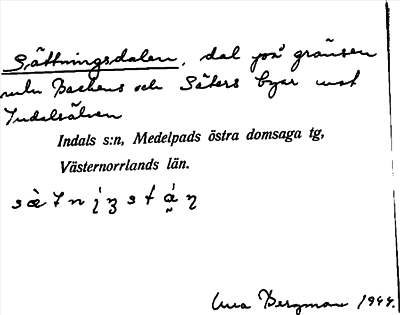 Sättningsdalen, dal på gränsen
mln Backens och Säters byar mot
Indalsälven
Indals s:n, Medelpads östra domsaga tg,
Västernorrlands län.
Bergman 1944.